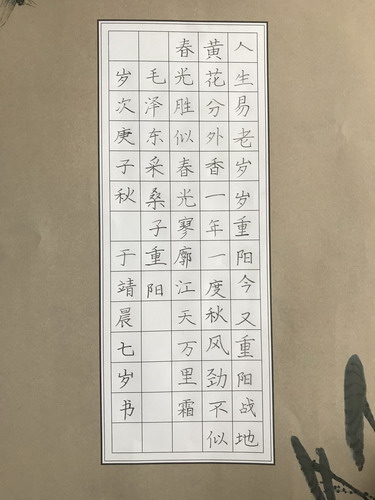 人生易老岁岁重阳今又重阳战地
黄花分外香一年一度秋风劲不似
春光胜似春光寥廓江天万里霜
毛泽东采桑子重阳
岁次庚子秋 于靖晨七岁书